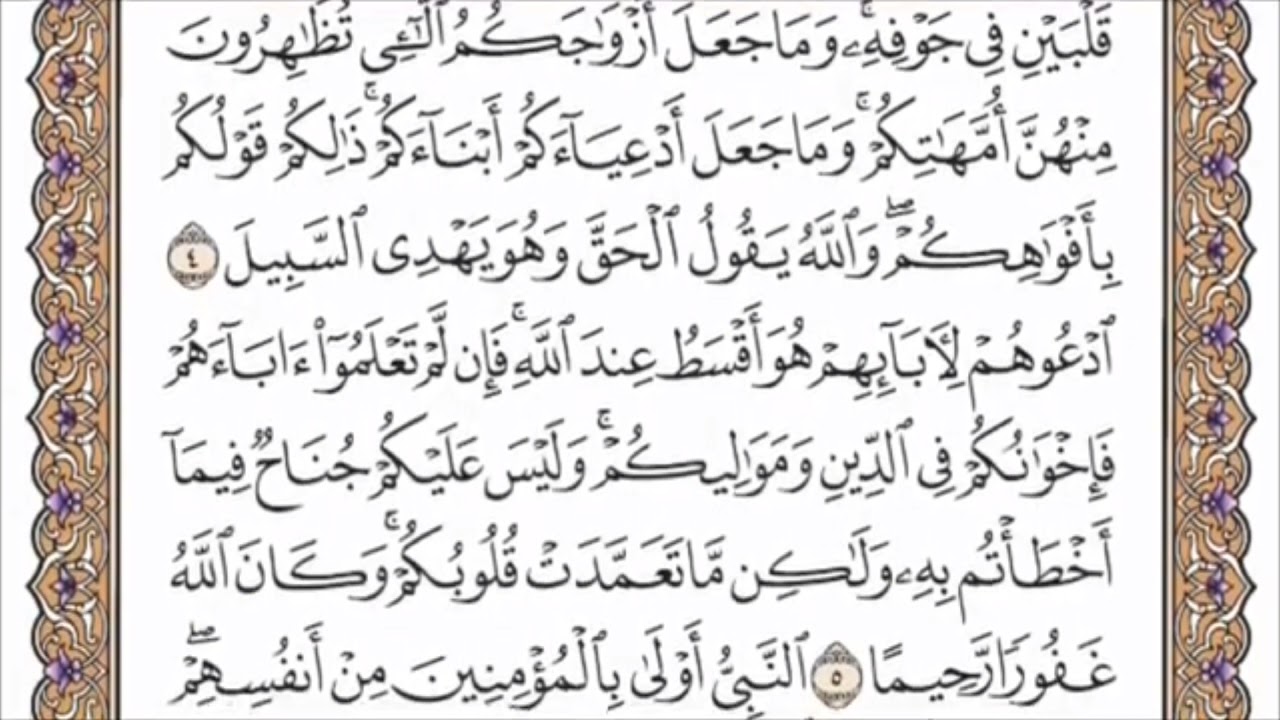 قَلۡبَيۡنِ فِي جَوۡفِهِۦۚ وَمَا جَعَلَ أَزۡوَٰجَكُمُ ٱلَّٰٓـِٔي تُظَٰهِرُونَ
مِنۡهُنَّ أُمَّهَٰتِكُمۡۚ وَمَا جَعَلَ أَدۡعِيَآءَكُمۡ أَبۡنَآءَكُمۡۚ ذَٰلِكُمۡ قَوۡلُكُم
بِأَفۡوَٰهِكُمۡۖ وَٱللَّهُ يَقُولُ ٱلۡحَقَّ وَهُوَ يَهۡدِي ٱلسَّبِيلَ ٤
ٱدۡعُوهُمۡ لِأٓبَآئِهِمۡ هُوَ أَقۡسَطُ عِندَ ٱللَّهِۚ فَإِن لَّمۡ تَعۡلَمُوٓاْ ءَابَآءَهُمۡ
فَإِخۡوَٰنُكُمۡ فِي ٱلدِّينِ وَمَوَٰلِيكُمۡۚ وَلَيۡسَ عَلَيۡكُمۡ جُنَاحٞ فِيمَآ
أَخۡطَأۡتُم بِهِۦ وَلَٰكِن مَّا تَعَمَّدَتۡ قُلُوبُكُمۡۚ وَكَانَ ٱللَّهُ
غَفُورٗا رَّحِيمًا ٥ ٱلنَّبِيُّ أَوۡلَىٰ بِٱلۡمُؤۡمِنِينَ مِنۡ أَنفُسِهِمۡۖ